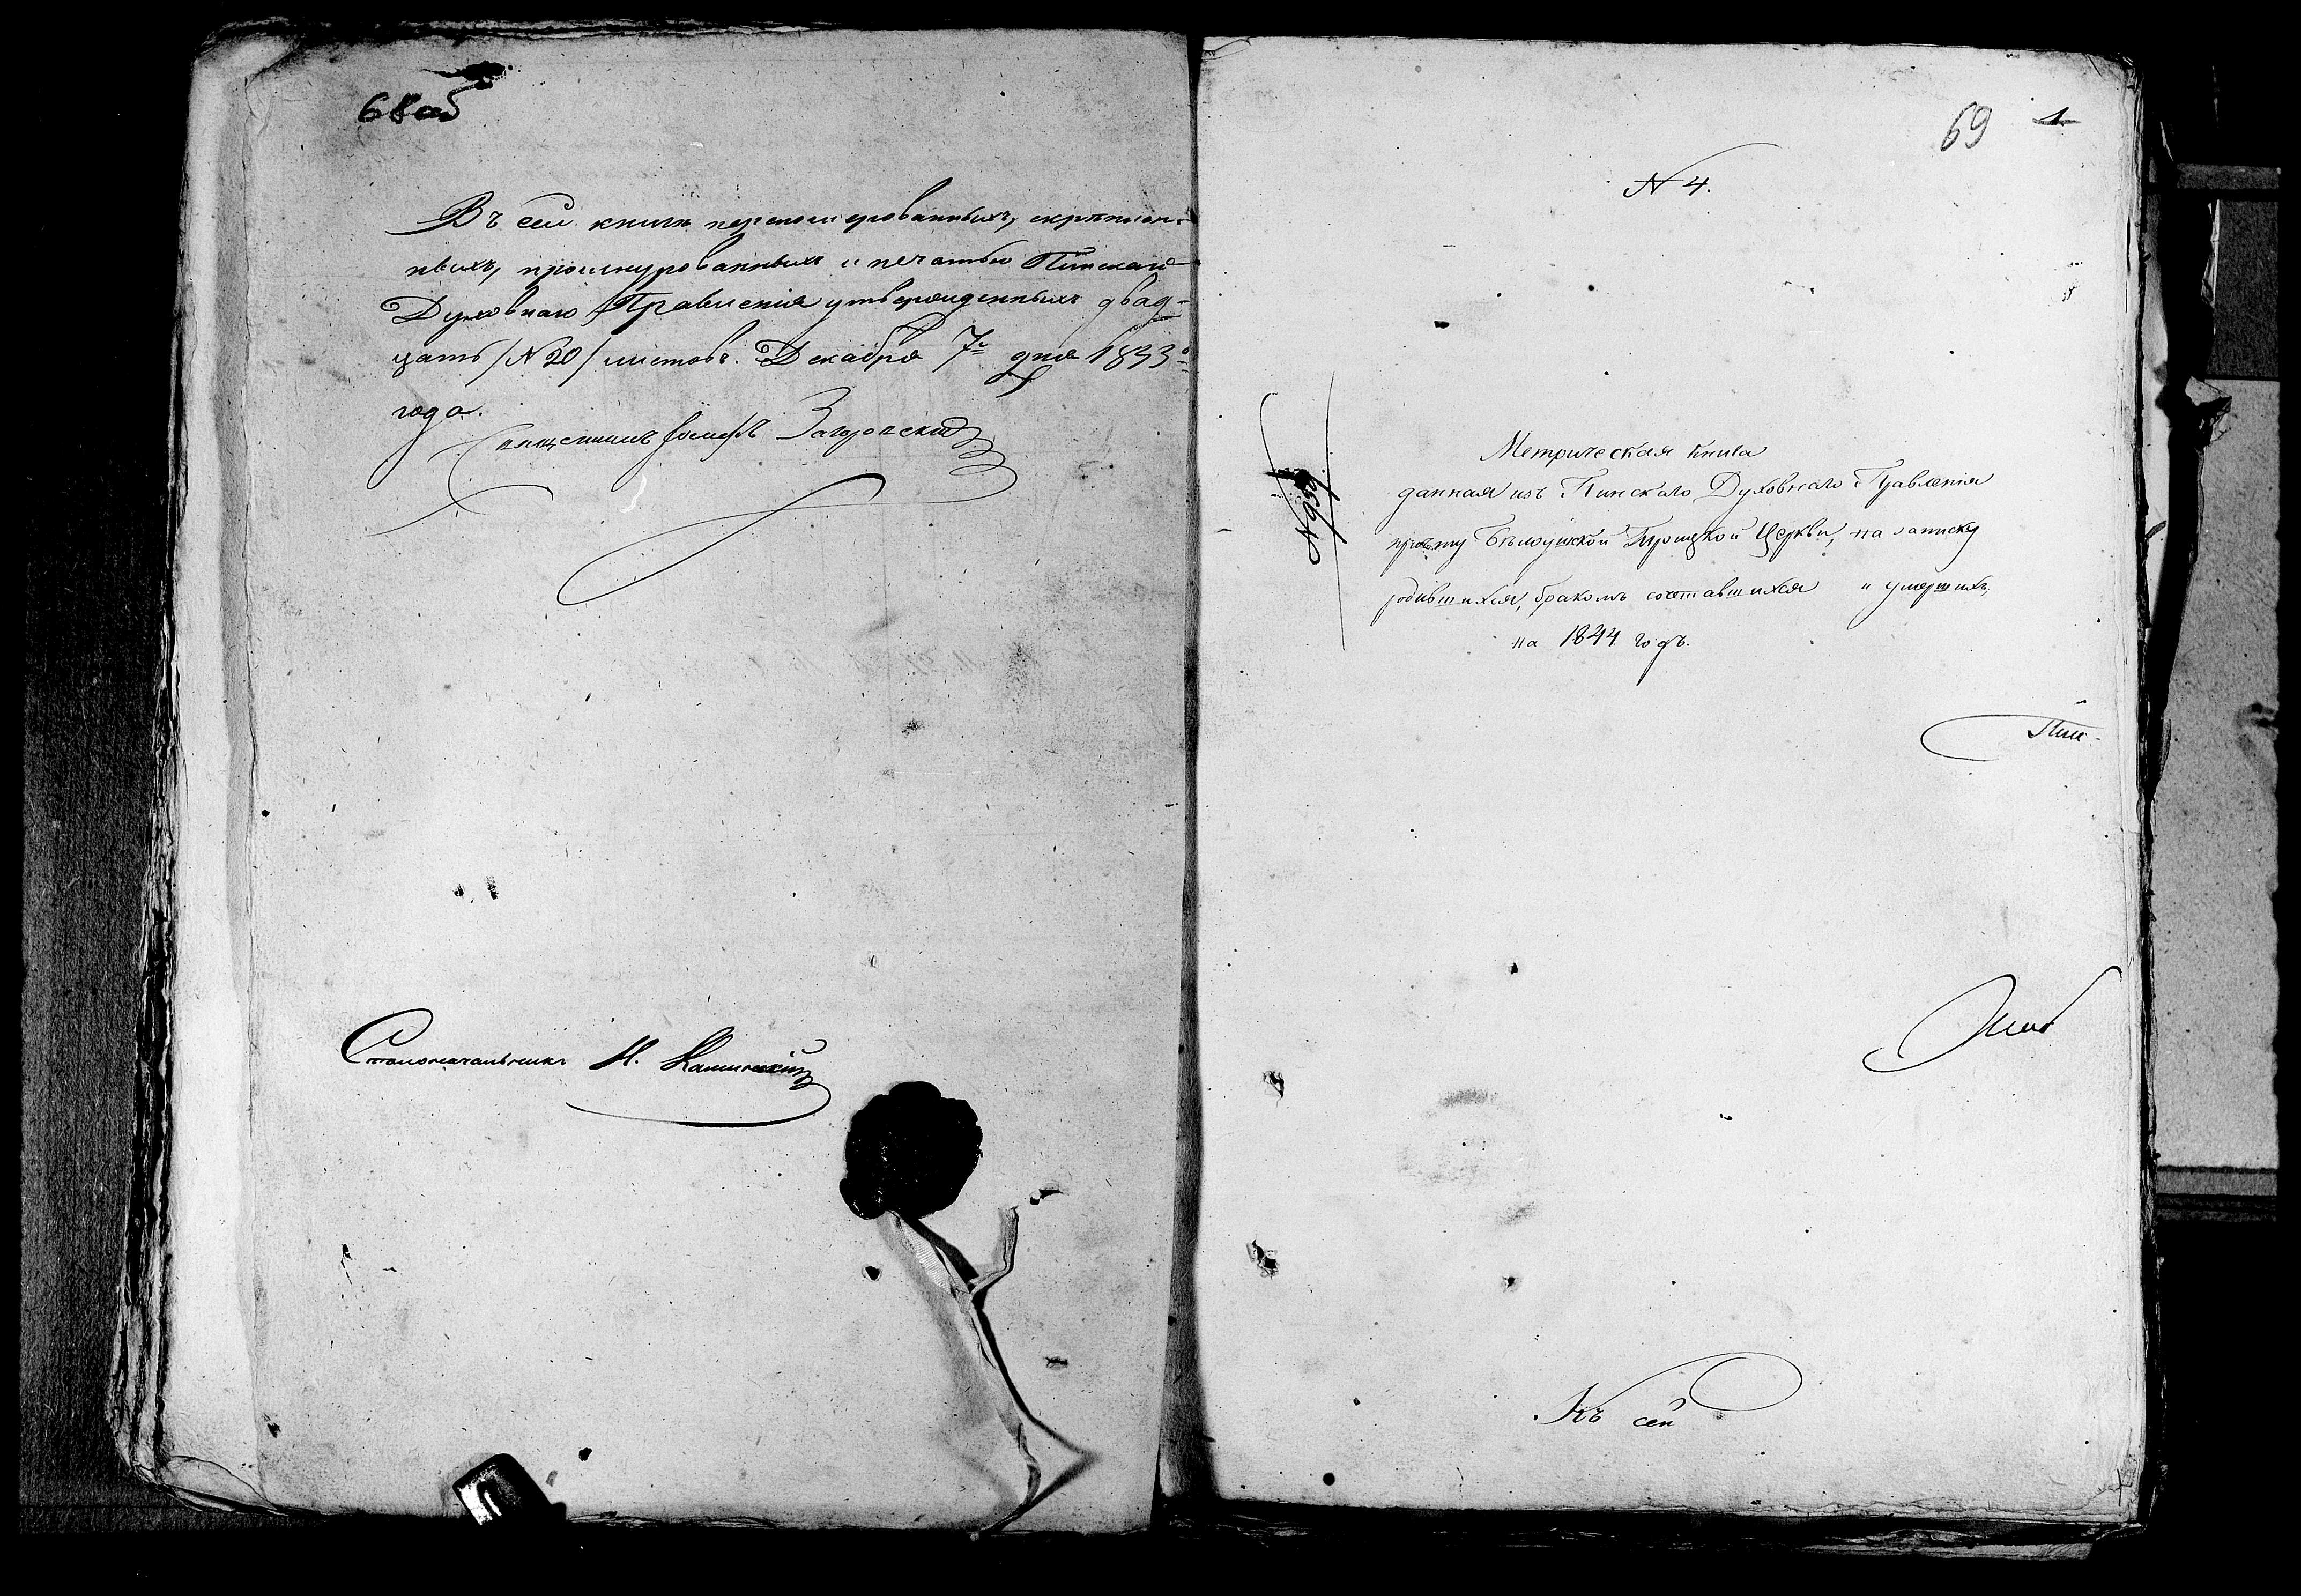 68об
Въ сей книгѣ перенумерованныхъ, скрѣплен-
ныхъ, прошнурованныхъ и печатью Пинскаго
Духовнаго Правленія утвержденныхъ двад-
цать /№ 20/ листовъ. Декабря 7го дня 1843го
года.
Священникъ Іосифъ
Столоначальникъ
69 1
№ 4.
№ 959
Метрическая книга
данная изъ Пинскаго Духовнаго Правленія
причту Троицкой Церкви, на записку
родившихся, бракомъ сочетавшихся и умершихъ,
на 1844 годъ.
Пин-
Къ сей